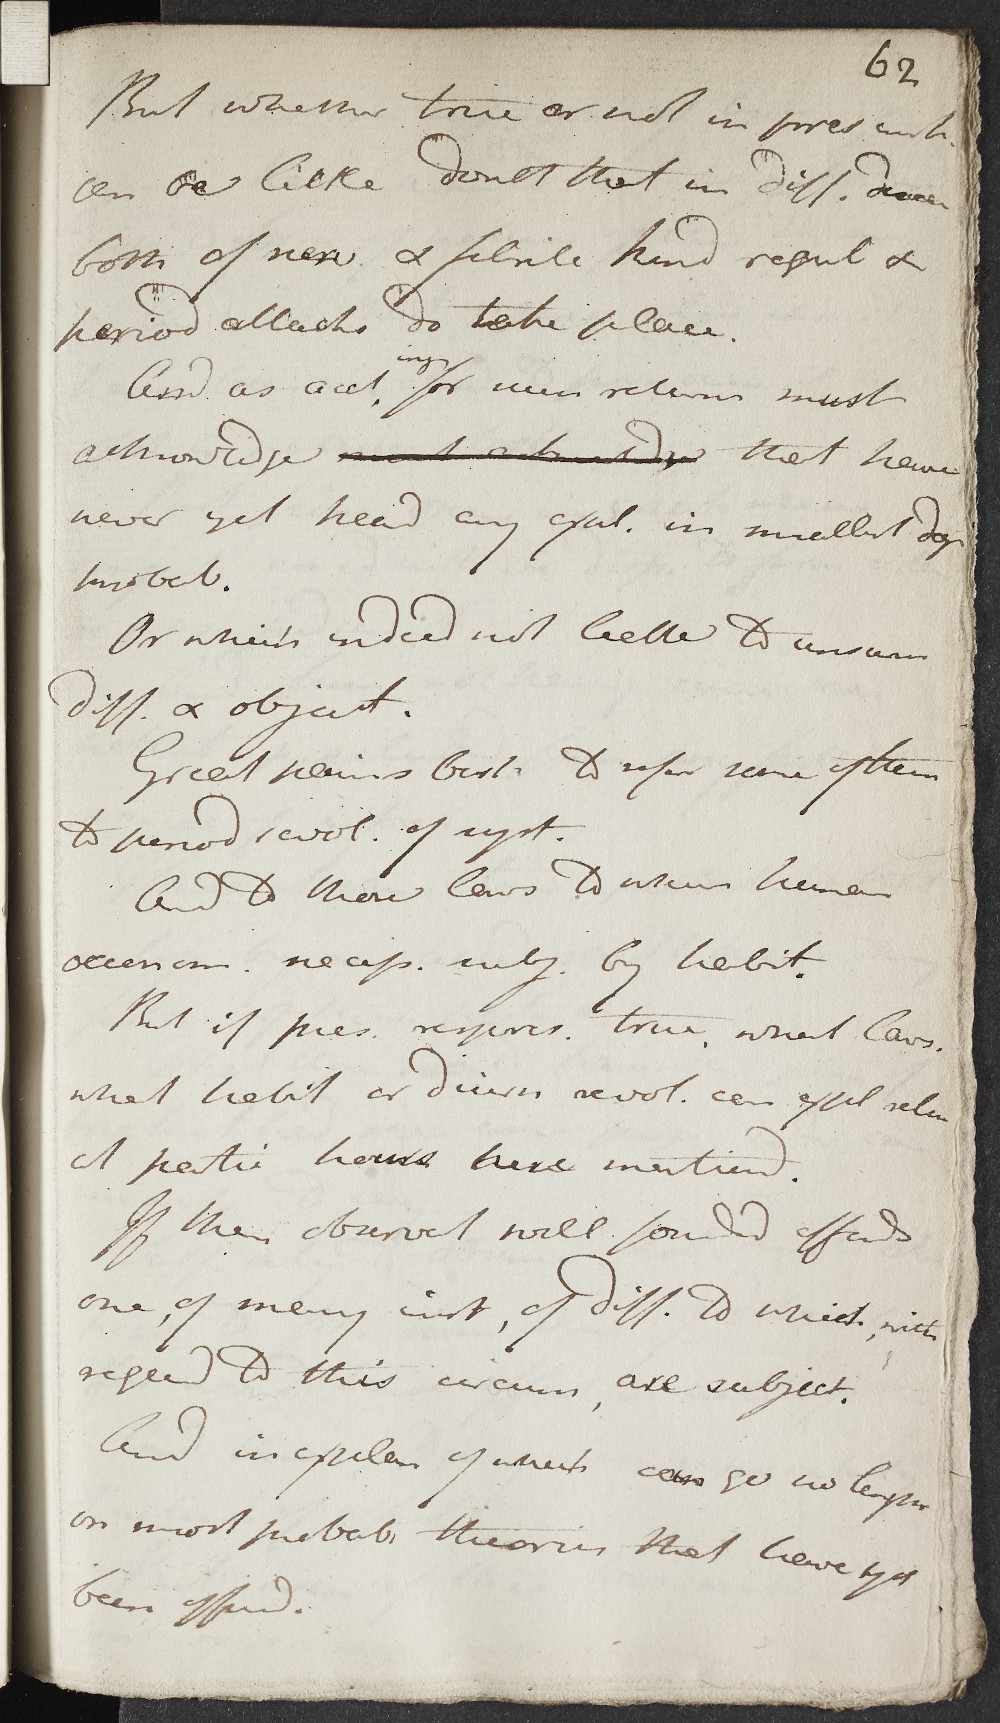 62
But whether true or not in pres inst.
can be little doubt that in diff. diseas
both of nerv. & febrile kind regul &
period attacks do take place.
And as acct. ing for such returns must
acknowledge must acknowledge that have
never yet heard any expl. in smallest deg
probab.
Or which indeed not liable to unsurm
diff. & object.
Great pains best. to refer some of them
to period revol. of syst.
And to those laws to which human
oeconom. necess. subj. by habit.
But if pres. respres. true, what laws.
what habit or diurn revol. can expl return
at partic hours here mentiond.
If then observat well founded affords
one, of many inst, of diff. to which, with
regard to this circum, are subject.
And in explan of which can go no length
on most probab theories that have yet
been offered.